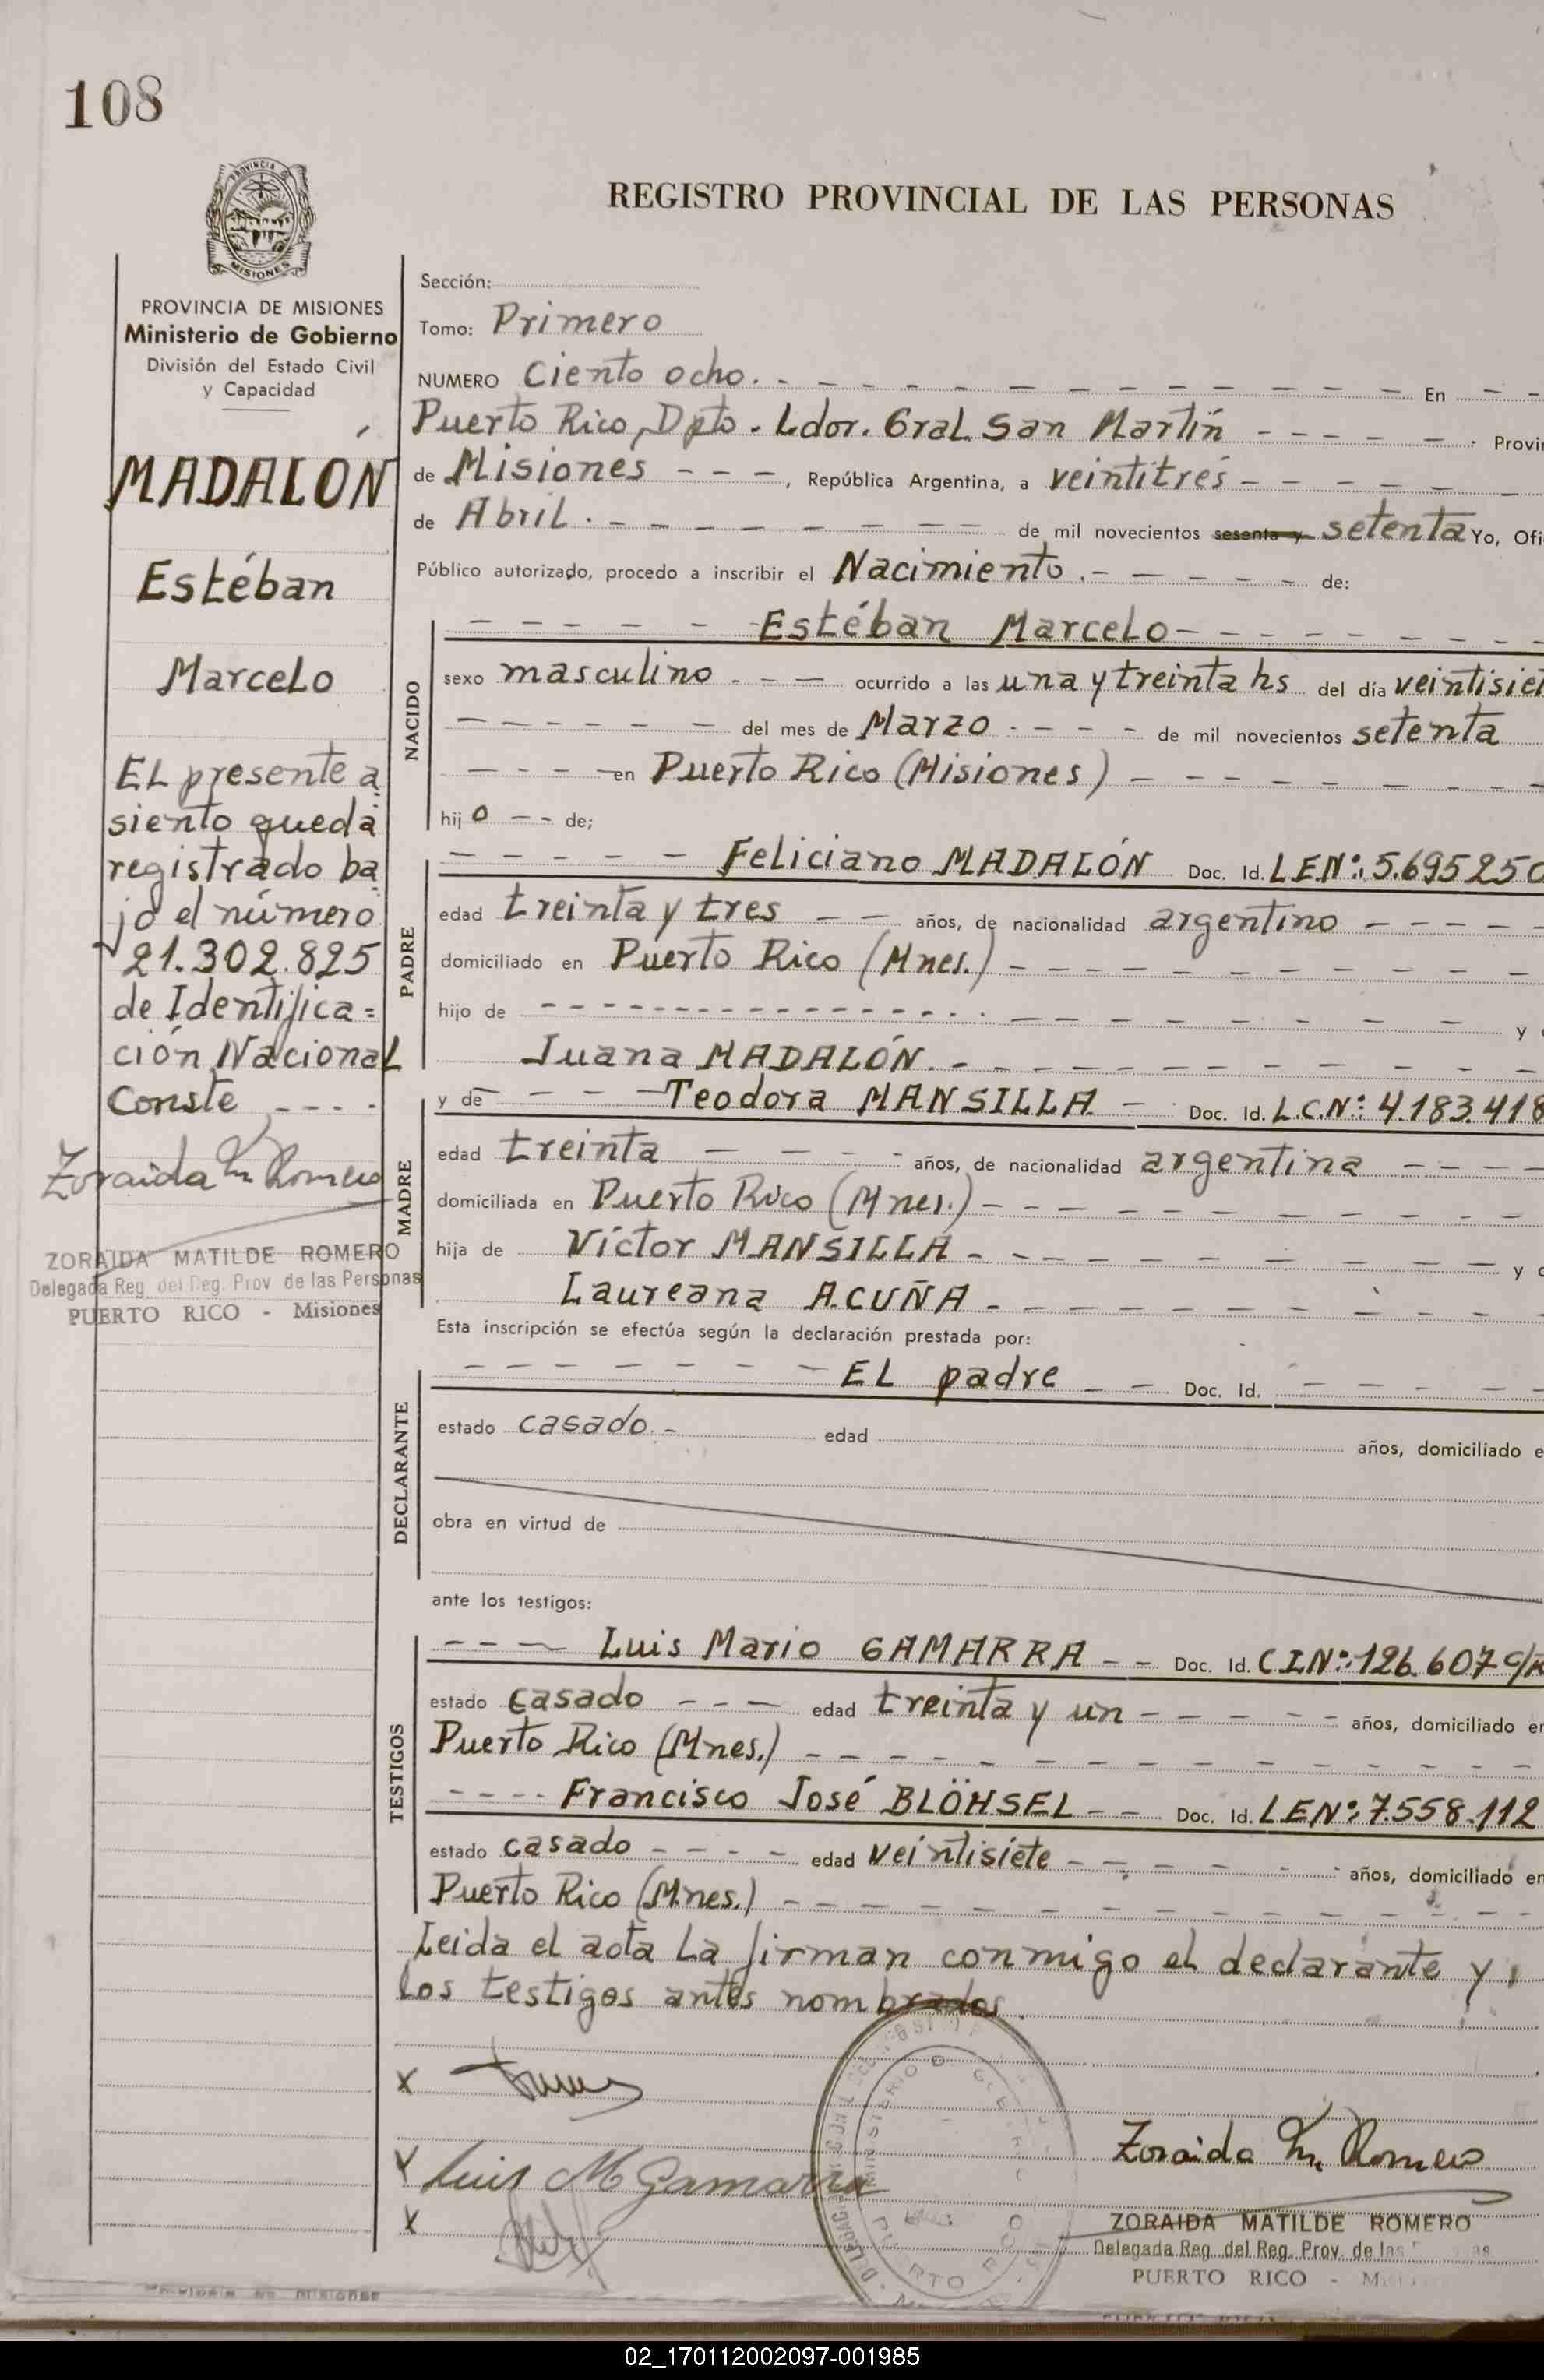 108
PROVINCIA DE
MISIONES
REGISTRO PROVINCIAL DE LAS PERSONAS
PROVINCIA DE MISIONES
Ministerio de Gobierno
División del Estado Civil
y Capacidad
MADALÓN
Estéban
Marcelo
EL presente a
siento queda
registrado ba
jo el número
21.302.825
de Identifica=
ción Nacional
Conste ----
Zoraida M. Romero
ZORAIDA MATILDE ROMERO
Delegada Reg. del Reg. Prov de las Personas
PUERTO RICO - Misiones
Sección:
Tomo: Primero
NUMERO Ciento ocho. - - - En - -
Puerto Rico, Dpto. Ldor. Gral. San Martín - - - - - Provin
de Misiones - - -, República Argentina, a veintitrés - - - - -
de Abril. - - - - - - - - de mil novecientos sesenta y setenta Yo, Ofi
Público autorizado, procedo a inscribir el Nacimiento. - - - - - de:
- - - - - Estéban Marcelo - - - - - - - -
NACIDO
sexo masculino - - - ocurrido a las una y treinta hs del día veintisie
- - - - - - del mes de Marzo - - - - de mil novecientos setenta
- - - - en Puerto Rico (Misiones) - - - - - - - -
hijo - - de;
PADRE
- - - - - Feliciano MADALÓN Doc. Id. LEN°: 5.695250
edad treinta y tres - - años, de nacionalidad argentino - - - - -
domiciliado en Puerto Rico (Mnes.) - - - - - - - - -
hijo de - - - - - - - - - - - - y
Juana MADALÓN. - - - - - - - - - -
MADRE
y de - - - - Teodora MANSILLA - Doc. Id. L.C.N°: 4.183.418
edad treinta - - - - años, de nacionalidad argentina - - - -
domiciliada en Puerto Rico (Mnes.) - - - - - - - - -
hija de Víctor MANSILLA - - - - - - - - y
Laureana ACUÑA - - - - - - - - -
Esta inscripción se efectúa según la declaración prestada por:
DECLARANTE
- - - - - - - EL padre - - Doc. Id. - - - - -
estado casado. - edad años, domiciliado e
obra en virtud de
ante los testigos:
TESTIGOS
- - - Luis Mario GAMARRA - - Doc. Id. C.I.N°: 126.607
estado casado - - - edad treinta y un - - - - - años, domiciliado en
Puerto Rico (Mnes.) - - - - - - - - - - -
- - - - Francisco José BLÖHSEL - - Doc. Id. LEN°: 7.558.112
estado casado - - - - edad veintisiete - - - - - años, domiciliado en
Puerto Rico (Mnes.) - - - - - - - - - - -
Leida el acta La firman conmigo el declarante y
los testigos antes nombrados.
x
x Luis M Gamarra
x
PUERTO RICO
Zoraida M. Romero
ZORAIDA MATILDE ROMERO
Delegada Reg. del Reg. Prov. de las
PUERTO RICO -
02_170112002097-001985